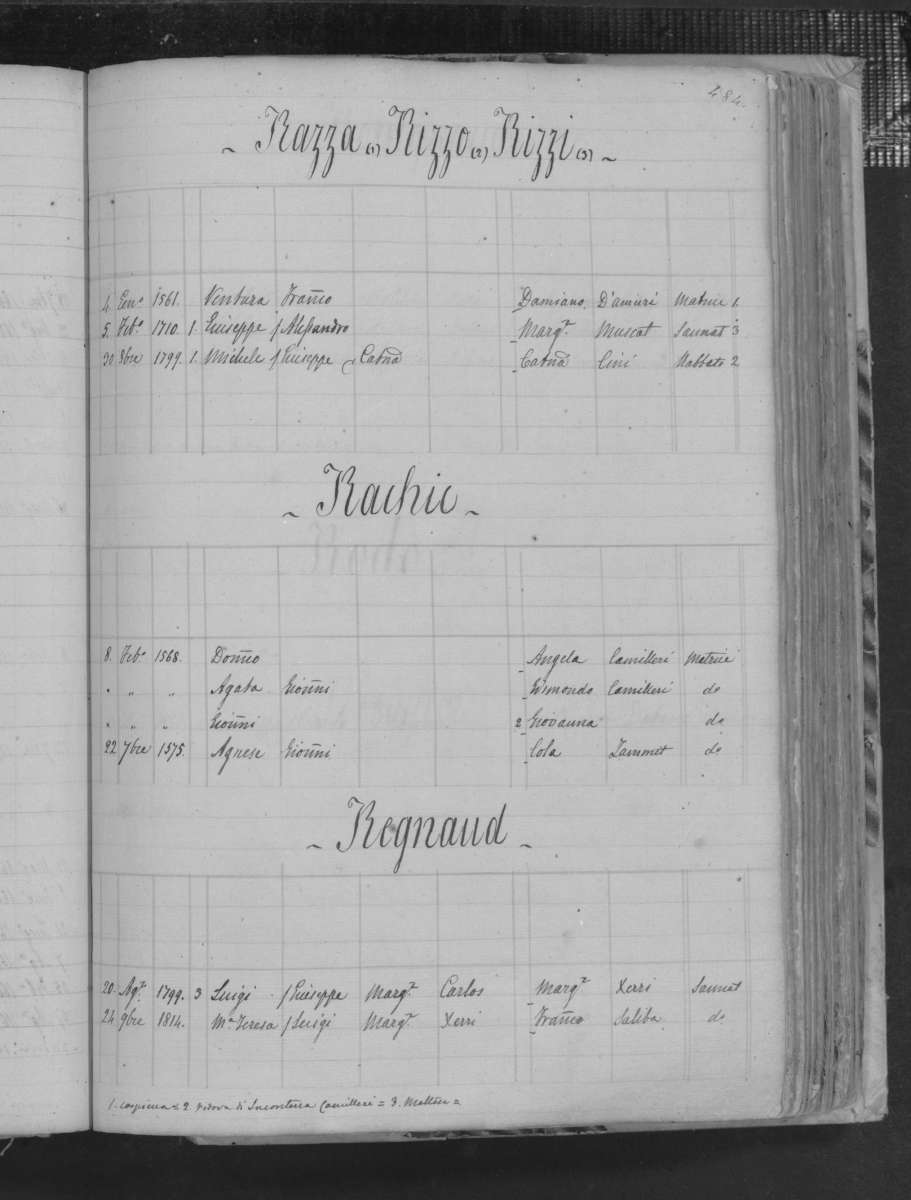 484.
~ Razza (1) Rizzo (2) Rizzi (3) ~
4. Enº 1561. Ventura Franco Damiano D'amieri Matrice 1.
5. Febº 1710. 1. Giuseppe f Alessandro Margta Muscat Sannat 3
30 3bre 1799. 1. Michele f Giuseppe Catna Catna Cini Rabbato 2
~ Rachic ~
8. Febº 1568. Domco Angela Camilleri Matrice
" " " Agata Gionni Camilleri do
" " " Gionni 2 Giovanna do
22 7bre 1575. Agnese Gionni Cola Zammit do
~ Regnaud ~
20. Agto 1799. 3 Luigi f Giuseppe Margta Carlos Margta Xerri Sannat
24 9bre 1814. Ma Teresa f Luigi Margta Xerri Franco Saliba do
2. vedova di Camilleri = 3.